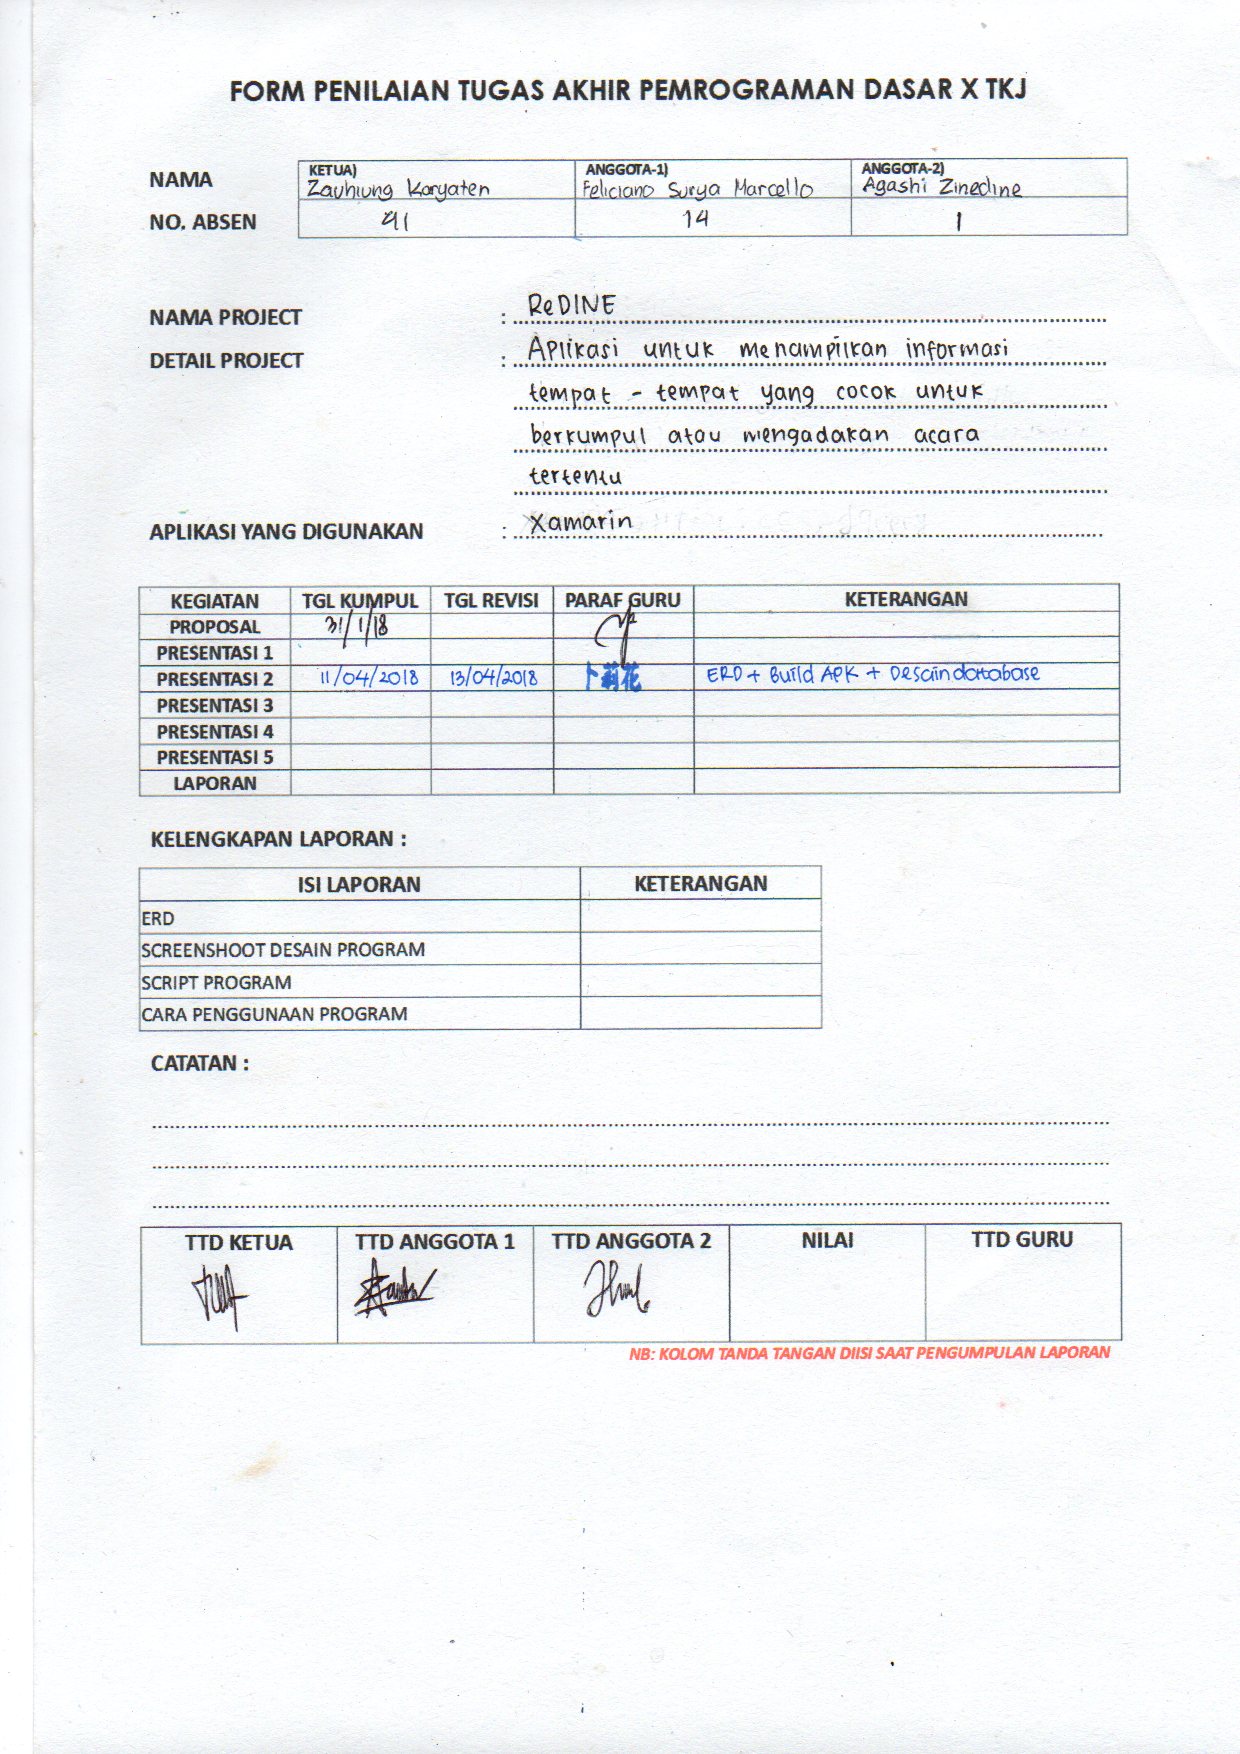 FORM PENILAIAN TUGAS AKHIR PEMROGRAMAN DASAR X TKJ
NAMA KETUA) ANGGOTA-1) ANGGOTA-2)
Zauhiung Karyaten Feliciano Surya Marcello Agashi Zinedine
NO. ABSEN 41 14 1
NAMA PROJECT : ReDINE
DETAIL PROJECT : Aplikasi untuk menampilkan informasi
tempat - tempat yang cocok untuk
berkumpul atau mengadakan acara
tertentu
APLIKASI YANG DIGUNAKAN : Xamarin
KEGIATAN TGL KUMPUL TGL REVISI PARAF GURU KETERANGAN
PROPOSAL 31/1/18
PRESENTASI 1
PRESENTASI 2 11/04/2018 13/04/2018 卜莉花 ERD + Build APK + Desain database
PRESENTASI 3
PRESENTASI 4
PRESENTASI 5
LAPORAN
KELENGKAPAN LAPORAN :
ISI LAPORAN KETERANGAN
ERD
SCREENSHOOT DESAIN PROGRAM
SCRIPT PROGRAM
CARA PENGGUNAAN PROGRAM
CATATAN :
TTD KETUA TTD ANGGOTA 1 TTD ANGGOTA 2 NILAI TTD GURU
NB: KOLOM TANDA TANGAN DIISI SAAT PENGUMPULAN LAPORAN